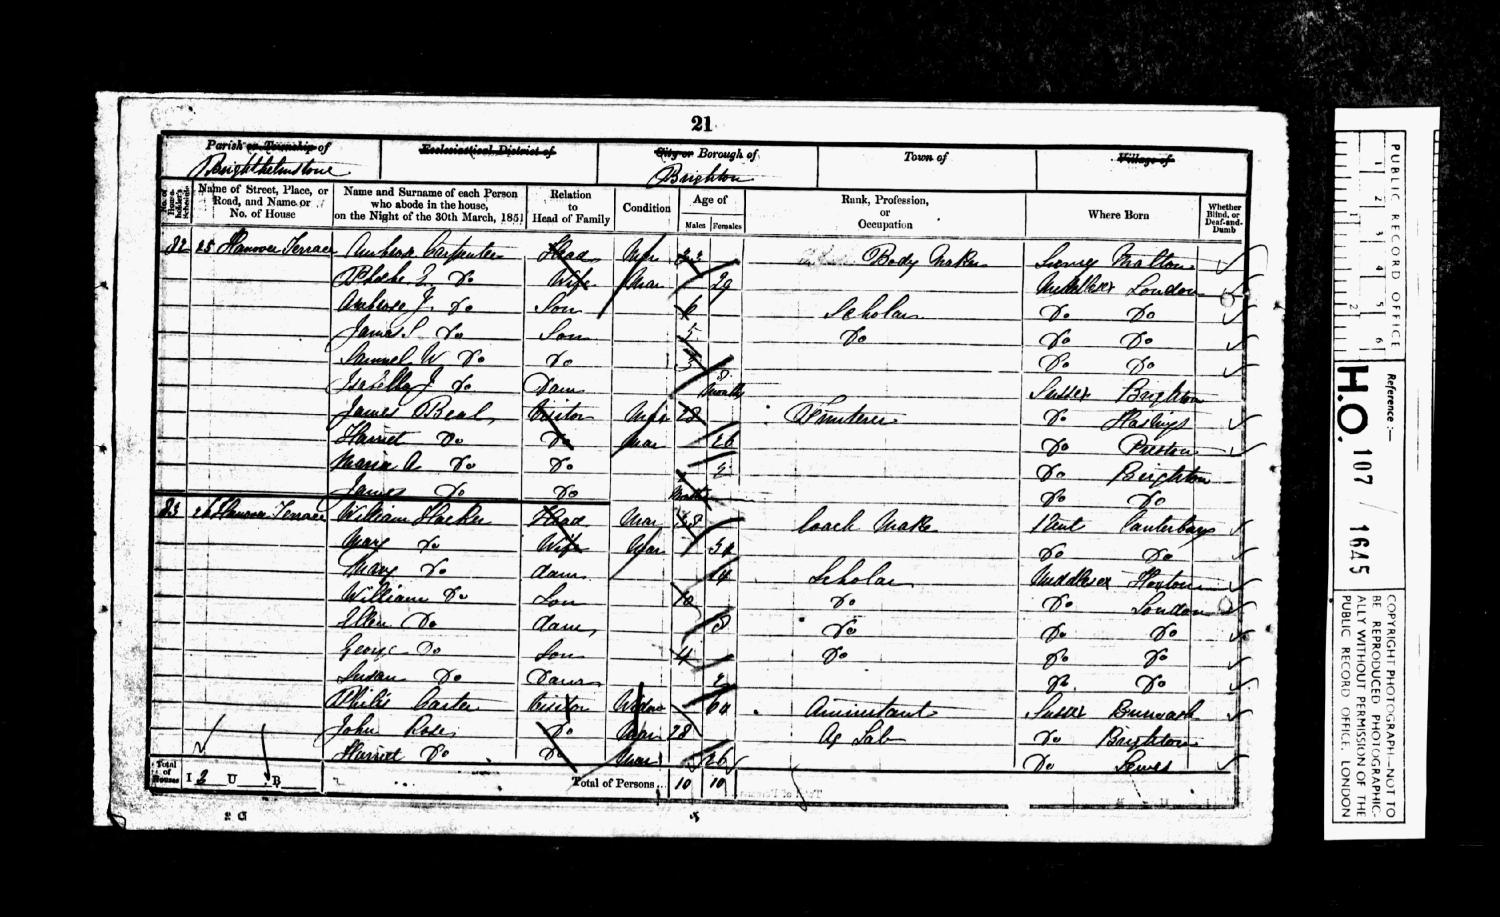 21
Parish or Township of
Brighthelmstone
Ecclesiastical District of
City or Borough of
Brighton
Town of
Village of
No. of House-holder's Schedule
Name of Street, Place, or Road, and Name or No. of House
Name and Surname of each Person who abode in the house, on the Night of the 30th March, 1851
Relation to Head of Family
Condition
Age of
Males Females
Rank, Profession, or Occupation
Where Born
Whether Blind, or Deaf-and-Dumb
82 25 Hanover Terrace Ambrose Carpenter Head Mar 33 Body Maker Surrey
Do Wife Mar 29 Middlesex London
Ambrose J. Do Son 6 Scholar Do Do
James S. Do Son 5 Do Do Do
Samuel W Do Do 3 Do Do
Isabella J Do Daur 8 Months Sussex Brighton
James Beal Visitor Mar 28 Do Hastings
Harriet Do Do Mar 26 Do Preston
Maria A Do Do 2 Do Brighton
James Do Do Months Do Do
83 26 Hanover Terrace William Hacker Head Mar 38 Coach Maker Kent Canterbury
Mary Do Wife Mar Do Do
Mary Do daur 14 Scholar Middlesex Hoxton
William Do Son 10 Do Do London
Ellen Do daur 8 Do Do Do
George Do Son 4 Do Do Do
Susan Do Daur 2 Do Do
Carter Visitor Widow 60 Annuitant Sussex Burwash
John Rose Do Mar 28 Ag Lab Do Brighton
Harriet Do Do Mar 26 Do Lewes
Total of Houses I 2 U B
Total of Persons... 10 10
2 G
PUBLIC RECORD OFFICE
1 2 3 4 5 6
1 2
Reference:-
H.O. 107 / 1645
COPYRIGHT PHOTOGRAPH-NOT TO
BE REPRODUCED PHOTOGRAPHIC-
ALLY WITHOUT PERMISSION OF THE
PUBLIC RECORD OFFICE, LONDON